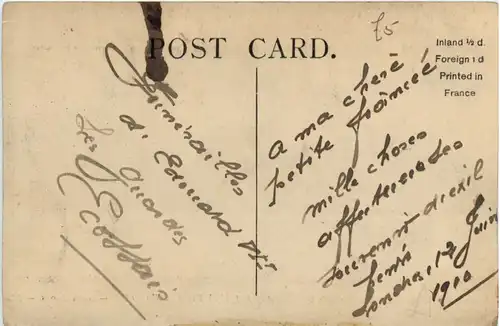 75
POST CARD.
Inland ½ d.
Foreign 1 d
Printed in
France
Funérailles
d' Edouard VII
Les Gardes
Ecossais
a ma chère
petite fiancée
mille choses
affectueuses
souvenir d'exil
Londres 17 Juin
1910